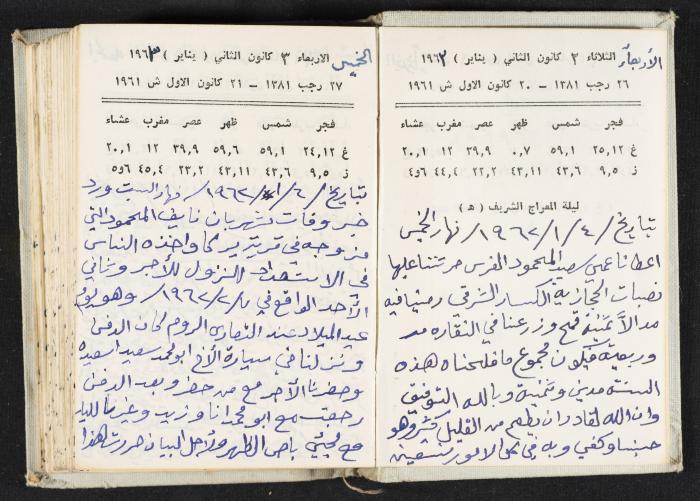 الأربعاء
الثلاثاء ٢ كانون الثاني ( يناير ) ١٩٦٢
٢٦ رجب ١٣٨١ – ٢٠ كانون الاول ش ١٩٦١
فجر شمس ظهر عصر مغرب عشاء
غ ٢٥,١٢ ٥٩,١ ٠,٧ ٣٩,٩ ١٢ ٢٠,١
ز ٩,٥ ٤٣,٦ ٤٣,١١ ٢٢,٢ ٤٤,٤ ٤و٦
ليلة المعراج الشريف ( ه )
بتاريخ / ٤ / ١ / ١٩٦٢ / نهار الخميس
اعطانا عمي سعيد المحمود الفرس حرتنا عليها
نصبات الحجازية الكسار الشرقي
مد الا ثمنية قمح وزرعنا في النقاره مد
وربعية فيكون مجموع ما فلحناه هذه
السنة مدين وثمنية وبالله التوفيق
وان الله لقادر ان يطعم من القليل كثير وهو
حسبنا وكفي وبه في كل الامور نستعين
الخميس
الاربعاء ٣ كانون الثاني ( يناير ) ١٩٦٣
٢٧ رجب ١٣٨١ – ٢١ كانون الاول ش ١٩٦١
فجر شمس ظهر عصر مغرب عشاء
غ ٢٤,١٢ ٥٩,١ ٥٩,٦ ٣٩,٩ ١٢ ٢٠,١
ز ٩,٥ ٤٣,٦ ٤٣,١١ ٢٣,٢ ٤٥,٤ ٦و٥
بتاريخ / ٦ / ١ / ١٩٦٢ / نهار السبت ورد
خبر وفات شهربان نايف المحمود التي
مزوجه في قرية واخذه الناس
في الاستعداد النزول للأجر وثاني
الأحد الواقع في ٧ / / ١٩٦٢ / وهو يوم
عيد الميلاد عند النصارى الروم كان الدفن
ونزلنا في سيارة الأخ ابو محمد سعيد اسعيد
وحضرنا الأجر مع من حضر وبعد الدفن
رجعت مع ابو محمد انا وزيد وغيرنا
مع باص الظهر ولأجل البيان حررت هذا